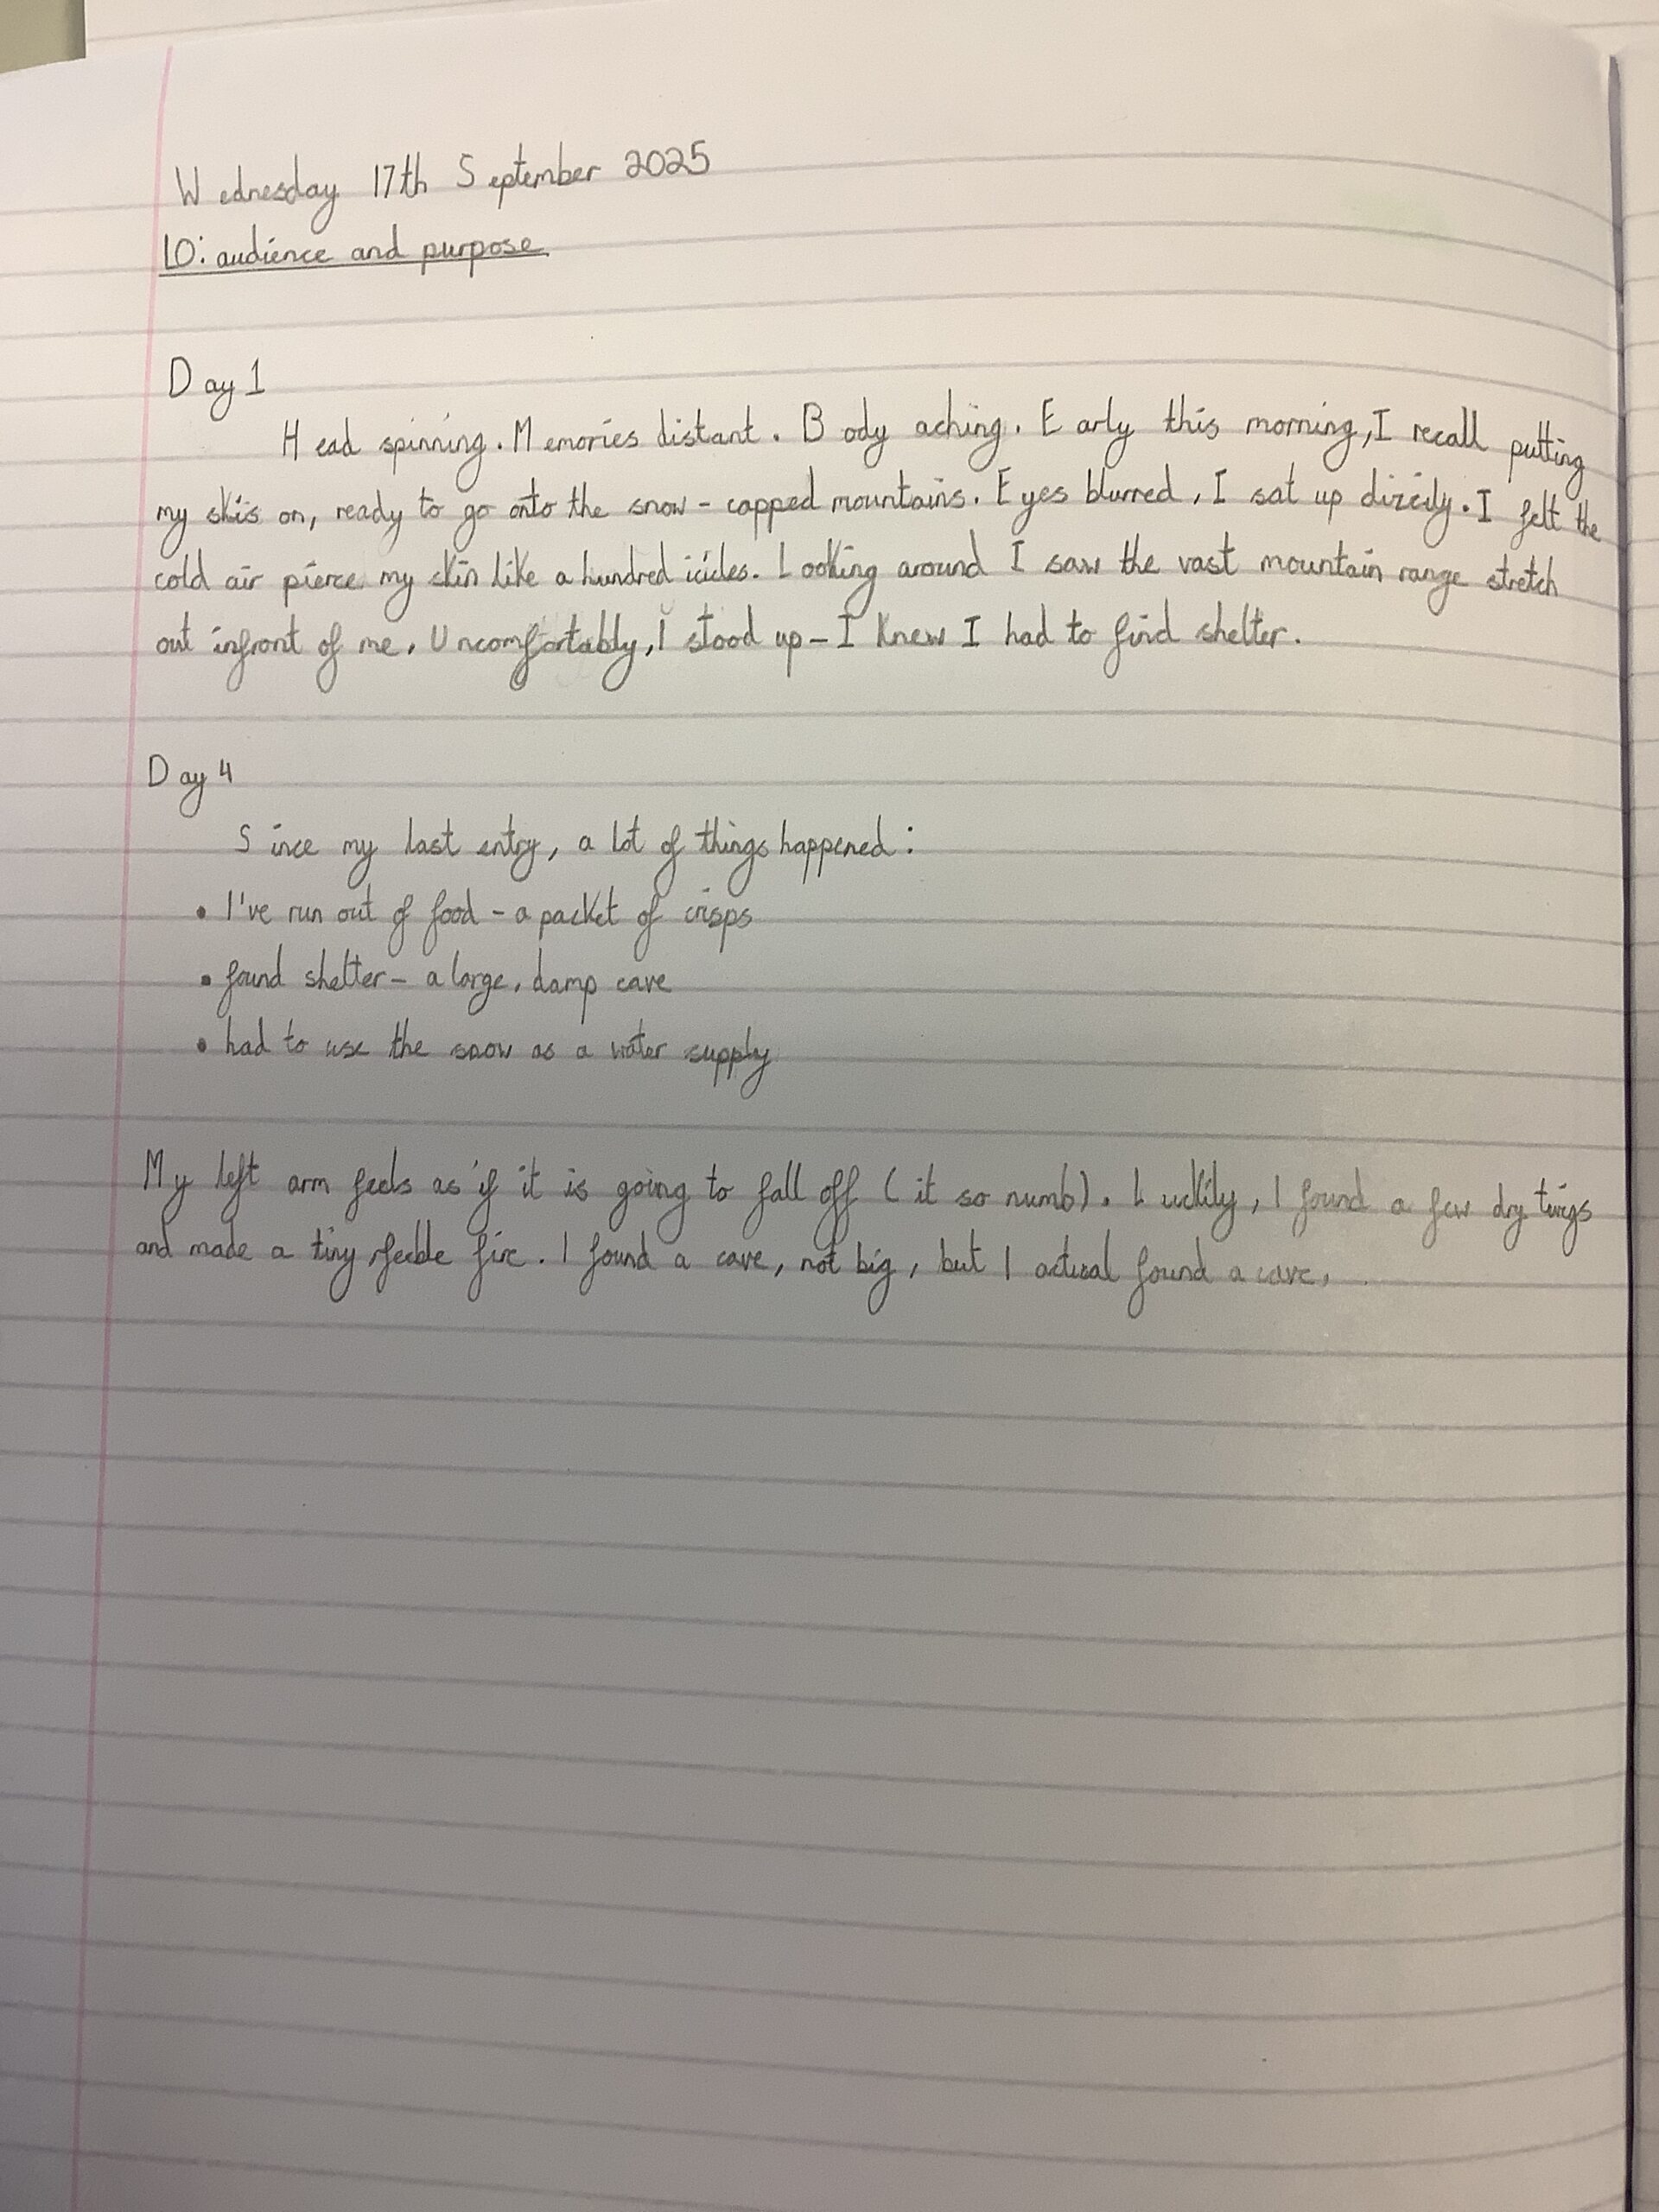 Wednesday 17th September 2025
LO: audience and purpose
Day 1
Head spinning. Memories distant. Body aching. Early this morning, I recall putting
my skis on, ready to go onto the snow-capped mountains. Eyes blurred, I sat up dizzily. I felt the
cold air pierce my skin like a hundred icicles. Looking around I saw the vast mountain range stretch
out infront of me. Uncomfortably, I stood up - I knew I had to find shelter.
Day 4
Since my last entry, a lot of things happened:
• I've run out of food - a packet of crisps
• found shelter - a large, damp cave
• had to use the snow as a water supply
My left arm feels as if it is going to fall off (it so numb). Luckily, I found a few dry twigs
and made a tiny, feeble fire. I found a cave, not big, but I actual found a cave.